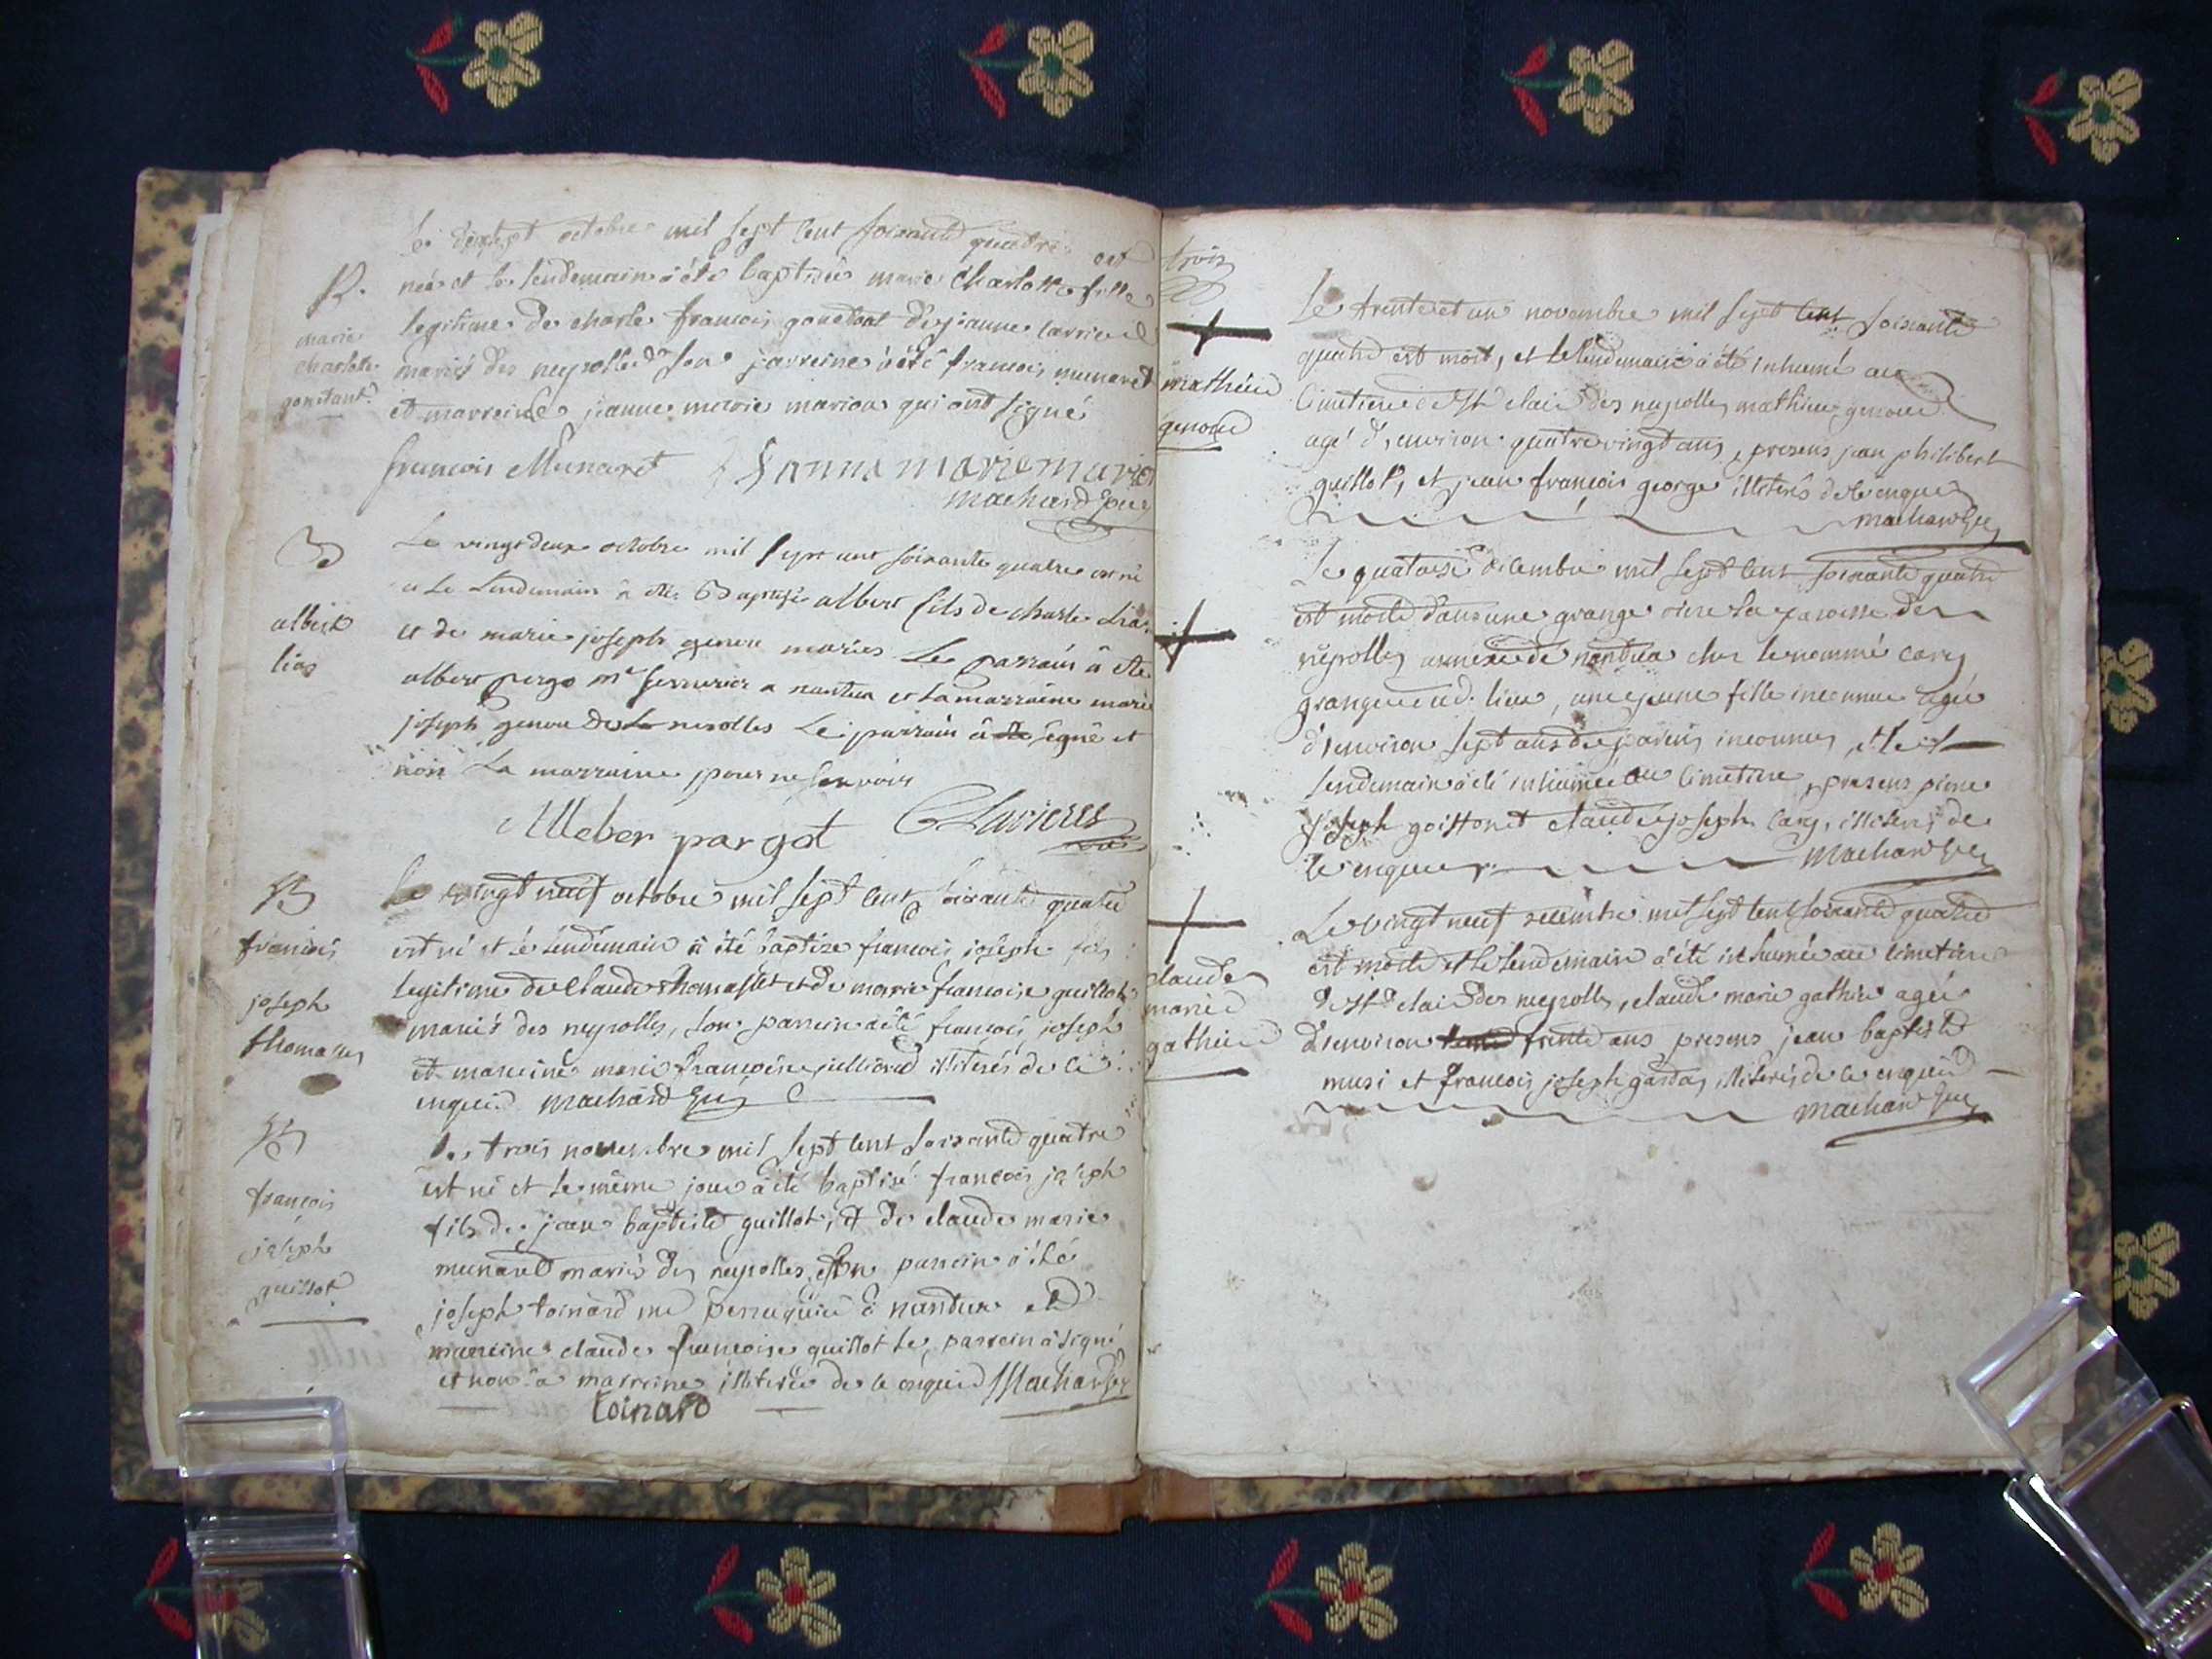 B.
marie
charlotte
gonetant
Le dixsept octobre mil sept cent soixante quatre est
née et le lendemain a été baptisée marie charlotte fille
legitime de charle francois gonetant de jeanne carrier
mariés des neyrolles son parreine a été francois munaret
et marreine jeanne marie marion qui ont signé
francois Munaret janna marie marion
machard
B
albert
lias
Le vingt deux octobre mil sept cent soixante quatre est né
et Le Lendemain a été Baptisé albert fils de charle Lias
et de marie joseph genou mariés Le parrain a été
albert pergo me serrurier a nantua et La marraine marie
joseph genou des nerolles Le parrain a signé et
non La marraine pour ne sçavoir
Allber pargot Clavieres
B
francois
joseph
thomasset
Le vingt neuf octobre mil sept cent soixante quatre
est né et le lendemain a été baptize francois joseph fils
legitime de Claude thomasset et de marie francoise guillot
mariés des neyrolles, son parrein a été francois joseph
et marreine marie francoise juilliard illiterés de ce
enquis machard
B
francois
joseph
guillot
Le trois novembre mil sept cent soixante quatre
est né et le même jour a été baptisé francois joseph
fils de jean baptiste guillot, et de claude marie
munaret mariés des neyrolles, son parrein a été
joseph toinard me perruquier à nantua et
marreine claude francoise guillot le parrein a signé
et non la marreine illiterée de ce enquise Machard
toinard
trois
mathieu
genoud
Le trente et un novembre mil sept cent soixante
quatre est mort, et le lendemain a été inhumé au
cimetiere de St clair des neyrolles mathieu genoud
agé d'environ quatre vingt ans, presens jean philibert
guillot, et jean francois george illiterés de ce enquis
machard
Le quatorze decembre mil sept cent soixante quatre
est morte dans une grange rière la paroisse des
neyrolles annexe de nantua chez le nommé cary
granger aud. lieu, une jeune fille inconnue agée
d'environ sept ans de parens inconnus, et le
lendemain a été inhumée au cimetiere, presens pierre
joseph goiffon et claude joseph cary, illiterés de
ce enquis machard
claude
marie
gathier
Le vingt neuf decembre mil sept cent soixante quatre
est morte et le lendemain a été inhumée au cimetiere
de St clair des neyrolles, claude marie gathier agée
d'environ trente ans presens jean baptiste
musi et francois joseph gardas, illiterés de ce enquis
machard